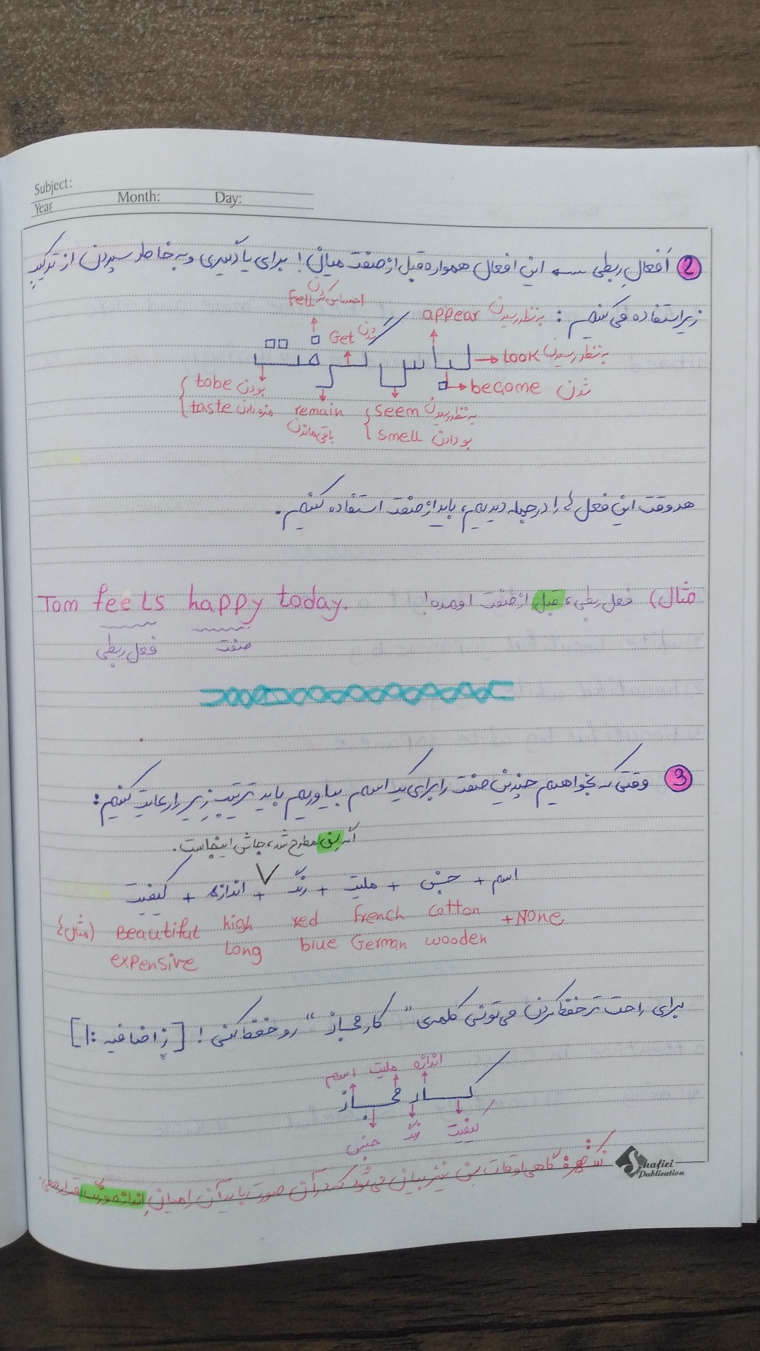 Subject:
Year Month: Day:
2 اَفعالِ ربطی ← این افعال همواره قبل از صفت میان! برای یادگیری و به خاطر سپردن از ترکیب
زیر استفاده می‌کنیم:
Fell احساس کردن
Get شدن
appear به نظر رسیدن
لباس گرفت
Look به نظر رسیدن
become شدن
to be بودن
taste مزه دادن
remain باقی ماندن
seem به نظر رسیدن
smell بو دادن
هر وقت این فعل ها را در جمله دیدیم، باید از صفت استفاده کنیم.
مثال) فعل ربطی، قبل از صفت اومده!
Tom feels happy today.
فعل ربطی صفت
3 وقتی که بخواهیم چندین صفت را برای یک اسم بیاوریم باید ترتیب زیر را رعایت کنیم:
اگر سن مطرح شد، جاش اینجاست.
کیفیت + اندازه + رنگ + ملیت + جنس + اسم
مثال) Beautiful high red French cotton + None
expensive Long blue German wooden
برای راحت تر حفظ کردن می‌تونی کلمه‌ی "کار مجاز" رو حفظ کنی! [ز اضافیه :ا]
اسم ملیت اندازه
کار مجاز
جنس رنگ کیفیت
گاهی اوقات سن نیز بیان می‌شود که در آن صورت باید آن را میان اندازه و رنگ قرار دهی.
Shafiei
Publication